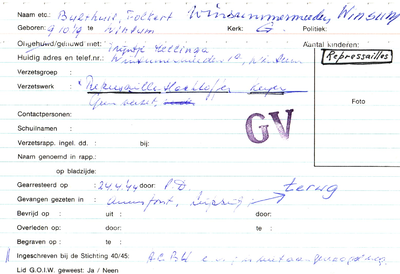 Naam etc.: Bulthuis, Folkert Winsummermeeden, WINSUM
Geboren: 9 10 19 te Winsum Kerk: G. Politiek:
Ongehuwd/gehuwd met: Aantal kinderen:
Huidig adres en telef.nr.: Winsummermeeden 10, Winsum
Repressailles
Verzetsgroep :
Verzetswerk : Represaille
Geen verzet,
Foto
Contactpersonen:
Schuilnaam :
GV
Verzetsrapp. ingel. dd. : bij:
Naam genoemd in rapp.:
op bladzijde:
Gearresteerd op : 24.4.44 door: SD
Gevangen gezeten in : Amersfoort, Leipzig terug
Bevrijd op : uit: te: door:
Overleden op: door: te:
Begraven op : te:
Ingeschreven bij de Stichting 40/45:
Lid G.O.I.W. geweest: Ja / Neen